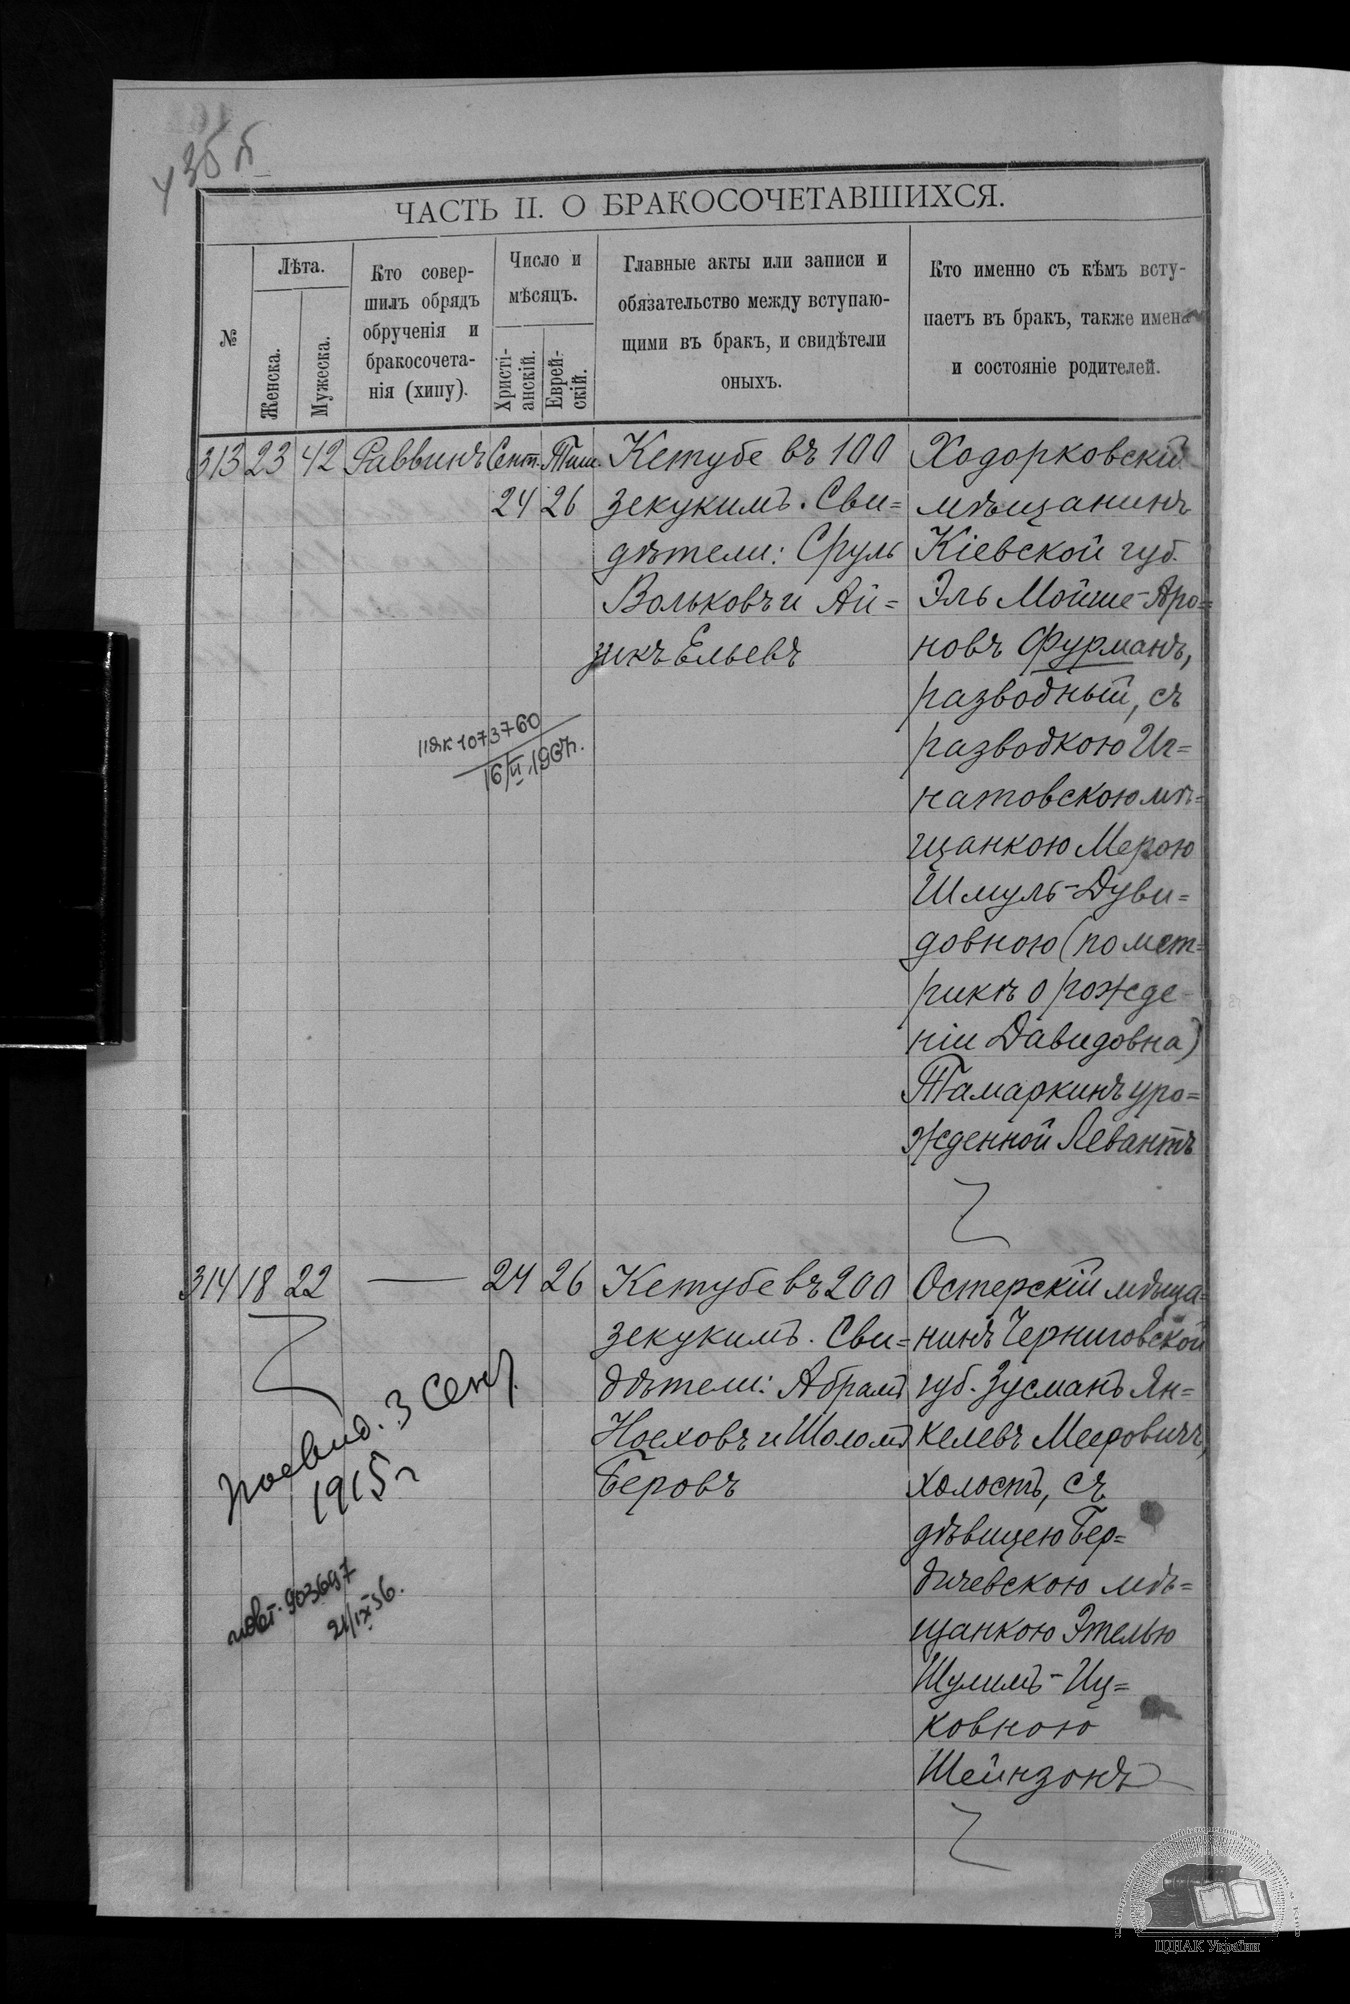 ЧАСТЬ II. О БРАКОСОЧЕТАВШИХСЯ.
№
Лѣта.
Женска.
Мужеска.
Кто совер-
шилъ обрядъ
обрученія и
бракосочета-
нія (хипу).
Число и
мѣсяцъ.
Христі-
анскій.
Еврей-
скій.
Главные акты или записи и
обязательство между вступаю-
щими въ бракъ, и свидѣтели
оныхъ.
Кто именно съ кѣмъ всту-
паетъ въ бракъ, также имена
и состояніе родителей.
313 23 42 Раввинъ Сент. Тиш.
24 26
Кетубе въ 100
зекукимъ. Сви=
дѣтели: Сруль
Вольковъ и Ай=
зикъ Ельевъ
Ходорковскій
мѣщанинъ
Кіевской губ.
Эль Мойше-Аро=
новъ Фурманъ,
разводный, съ
разводкою Иг=
натовскою мѣ=
щанкою Мерою
Шмуль-Дуви=
довною (по мет=
рикѣ о рожде-
ніи Давидовна)
Тамаркинъ уро=
жденной Левантъ
1073760
314 18 22 — 24 26
Кетубе въ 200
зекукимъ. Сви=
дѣтели: Абрамъ
Ноеховъ и Шоломъ
Беровъ
Остерскій мѣща=
нинъ Черниговской
губ. Зусманъ Ян=
келевъ Мееровичъ,
холостъ, съ
дѣвицею Бер=
дичевскою мѣ=
щанкою Этелью
Шулимъ-Иц=
ковною
Шейнзонъ
3 Сент.
1915 г
903697
21/IX 36.
ЦДІАК України